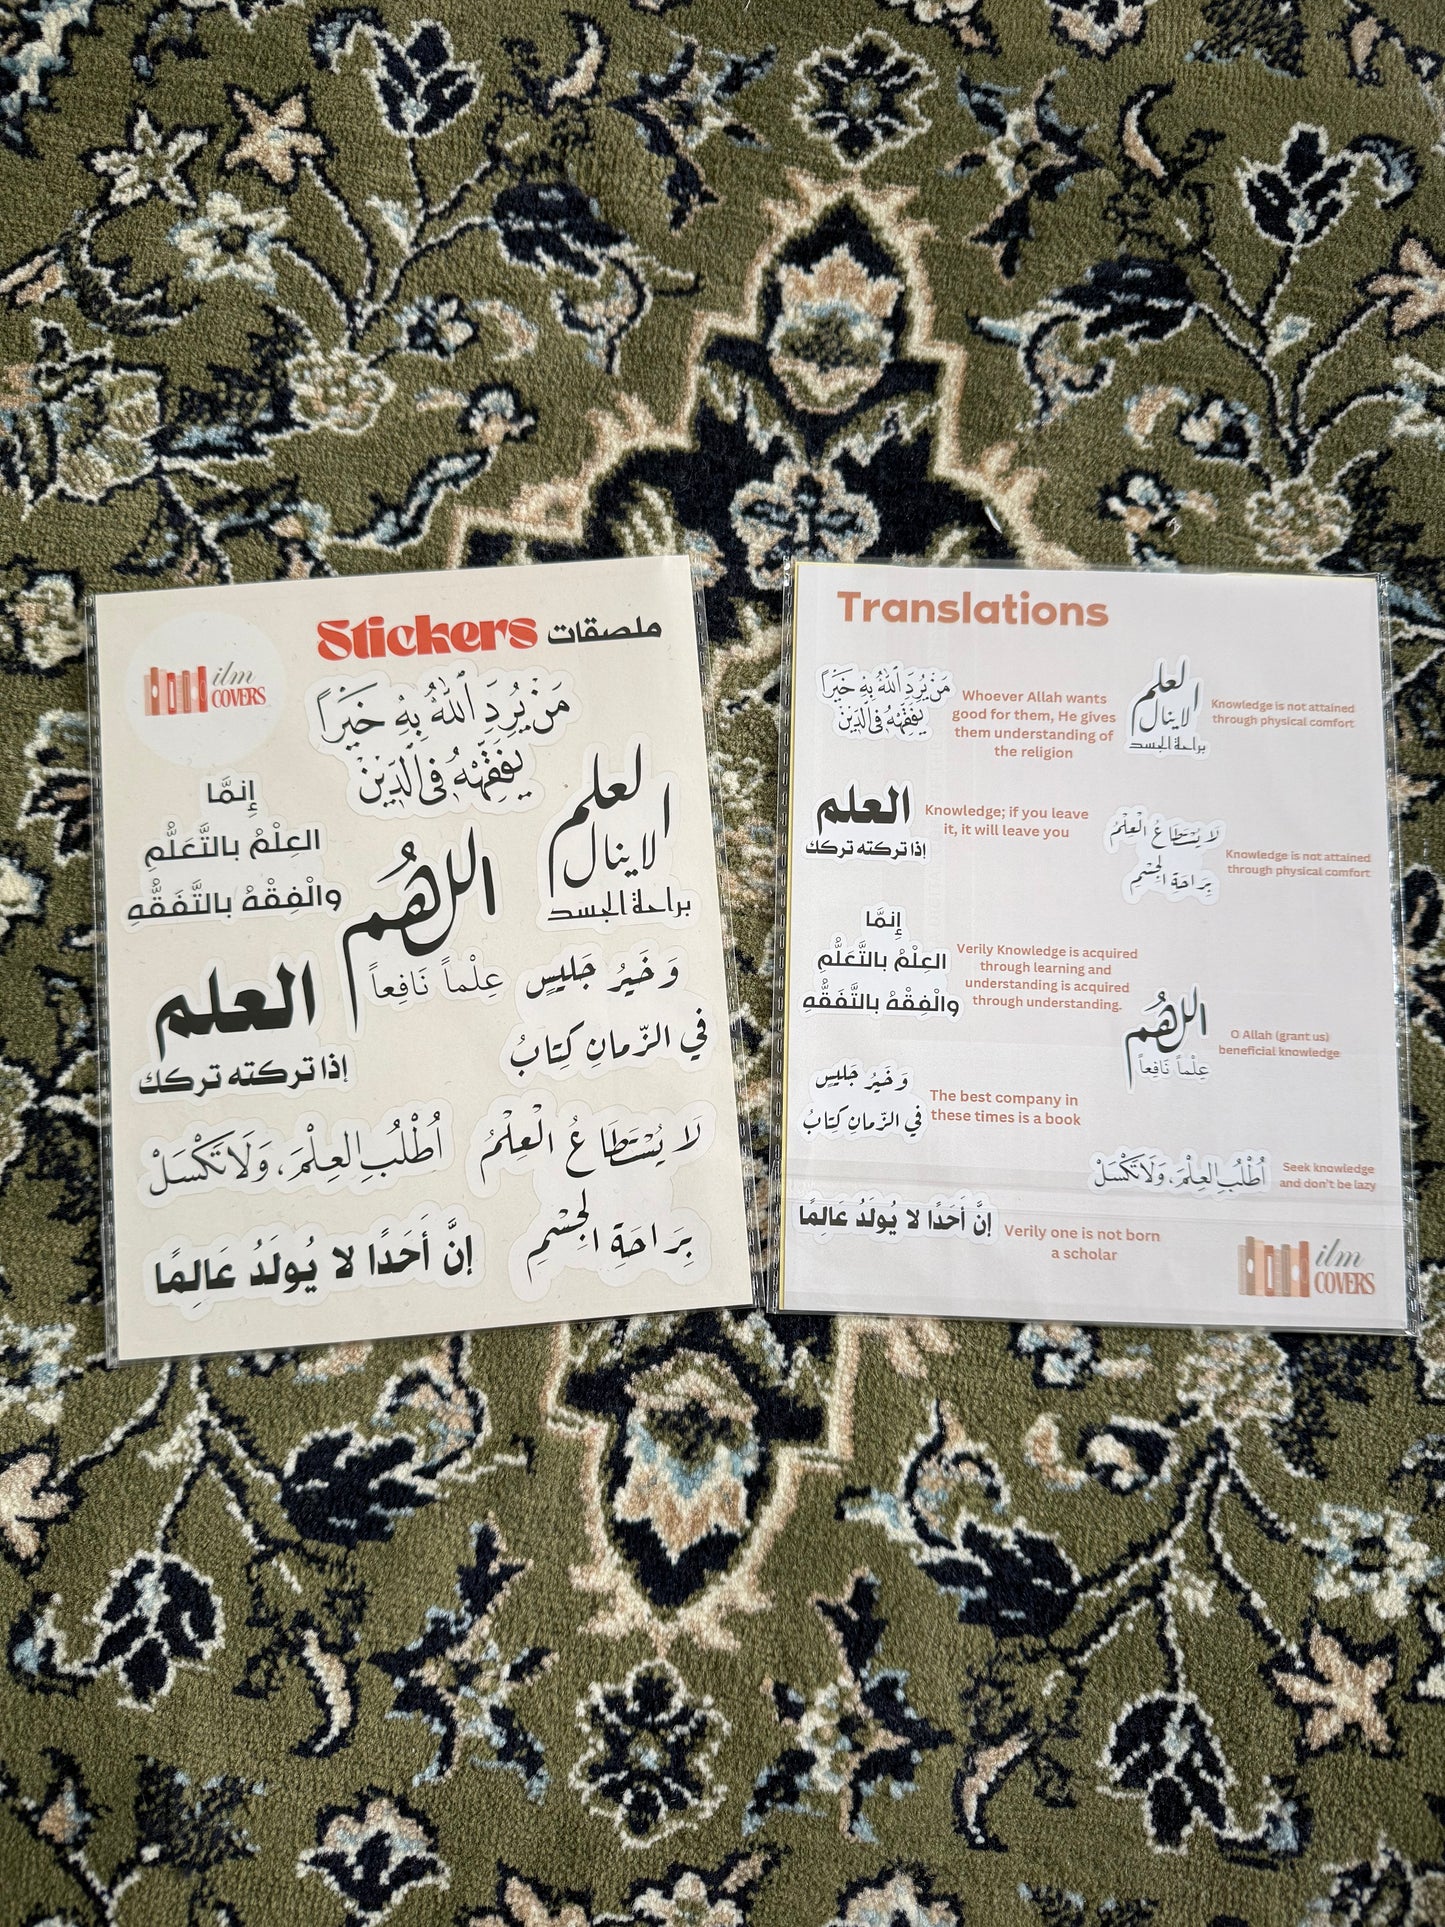 ilm
COVERS
Stickers ملصقات
مَنْ يُرِدَ ٱللهُ بِهِ خَيْرًا
يُفَقِّهْهُ فِي ٱلدِّيْنِ
إِنمَّا
العِلْمُ بالتَّعَلُّمِ
والْفِقْهُ بالتَّفَقُّهِ
العلم
لا ينال
براحة الجسد
اللهُم
عِلْماً نَافِعاً
العلم
إذا تركته تركك
وَخَيرُ جَليسٍ
في الزّمانِ كِتابُ
أُطْلُبِ العِلْمَ، وَلَا تَكْسَلْ
لَا يُسْتَطَاعُ الْعِلْمُ
بِرَاحَةِ الْجِسْمِ
إنَّ أَحَدًا لا يُولَدُ عَالِمًا
Translations
مَنْ يُرِدَ ٱللهُ بِهِ خَيْرًا
يُفَقِّهْهُ فِي ٱلدِّيْنِ
Whoever Allah wants
good for them, He gives
them understanding of
the religion
العلم
لا ينال
براحة الجسد
Knowledge is not attained
through physical comfort
العلم
إذا تركته تركك
Knowledge; if you leave
it, it will leave you
لَا يُسْتَطَاعُ الْعِلْمُ
بِرَاحَةِ الْجِسْمِ
Knowledge is not attained
through physical comfort
إِنمَّا
العِلْمُ بالتَّعَلُّمِ
والْفِقْهُ بالتَّفَقُّهِ
Verily Knowledge is acquired
through learning and
understanding is acquired
through understanding.
اللهُم
عِلْماً نَافِعاً
O Allah (grant us)
beneficial knowledge
وَخَيرُ جَليسٍ
في الزّمانِ كِتابُ
The best company in
these times is a book
أُطْلُبِ العِلْمَ، وَلَا تَكْسَلْ
Seek knowledge
and don't be lazy
إنَّ أَحَدًا لا يُولَدُ عَالِمًا
Verily one is not born
a scholar
ilm
COVERS